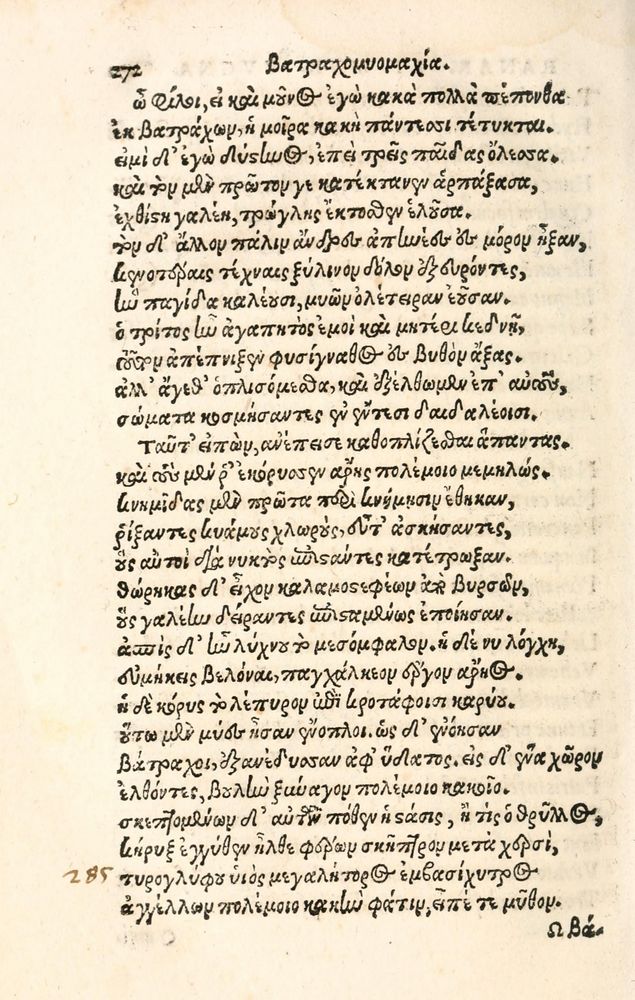 272 Βατραχομυομαχία.
ὦ φίλοι, εἰ καὶ μοῦνος ἐγὼ κακὰ πολλὰ πέπονθα
ἐκ Βατράχων, ἡ μοῖρα κακὴ πάντεσι τέτυκται.
εἰμὶ δ' ἐγὼ δύστηνος, ἐπεὶ τρεῖς παῖδας ὄλεσα.
καὶ τὸν μὲν πρῶτόν γε κατέκτανεν ἁρπάξασα,
ἐχθίστη γαλέη, τρώγλης ἔκτοθεν ἑλοῦσα.
τὸν δ' ἄλλον πάλιν ἄνδρες ἀπηνέες ἐς μόρον ἦξαν,
καινοτέραις τέχναις ξύλινον δόλον ἐξευρόντες,
ἣν παγίδα καλέουσι, μυῶν ὀλέτειραν ἐοῦσαν.
ὁ τρίτος ἦν ἀγαπητὸς ἐμοὶ καὶ μητέρι κεδνῇ,
τοῦτον ἀπέπνιξεν φυσίγναθος ἐς Βυθὸν ἄξας.
ἀλλ' ἄγεθ' ὁπλισόμεσθα, καὶ ἐξέλθωμεν ἐπ' αὐτούς,
σώματα κοσμήσαντες ἐν ἔντεσι δαιδαλέοισι.
Ταῦτ' εἰπὼν, ἀνέπεισε καθοπλίζεσθαι ἅπαντας.
καὶ τοὺς μέν ῥ' ἐκόρυσεν ἄρης πολέμοιο μεμηλώς.
κνημῖδας μὲν πρῶτα περὶ κνήμῃσιν ἔθηκαν,
ῥίξαντες κυάμους χλωροὺς, εὖτ' ἀσκήσαντες,
οὓς αὐτοὶ διὰ νυκτὸς ἐπιστάντες κατέτρωξαν.
θώρηκας δ' εἶχον καλαμοστεφέων ἀπὸ Βυρσῶν,
οὓς γαλέην δείραντες ἐπισταμένως ἐποίησαν.
ἀσπὶς δ' ἦν λύχνου τὸ μεσόμφαλον. ἡ δέ νυ λόγχη,
εὐμήκεις Βελόναι, παγχάλκεον ἔργον ἄρηος.
ἡ δὲ κόρυς τὸ λέπυρον ἐπὶ κροτάφοισι καρύου.
οὕτω μὲν μύες ἦσαν ἔνοπλοι. ὡς δ' ἐνόησαν
Βάτραχοι, ἐξανέδυσαν ἀφ' ὕδατος. εἰς δ' ἕνα χῶρον
ἐλθόντες, βουλὴν ξύναγον πολέμοιο κακοῖο.
σκεπτομένων δ' αὐτῶν πόθεν ἡ στάσις, ἢ τίς ὁ θρῦλλος,
κήρυξ ἐγγύθεν ἦλθε φέρων σκῆπτρον μετὰ χερσὶ,
285 τυρογλύφου υἱὸς μεγαλήτορος ἐμβασίχυτρος
ἀγγέλλων πολέμοιο κακὴν φάτιν, εἶπέ τε μῦθον.
Ω Βά-